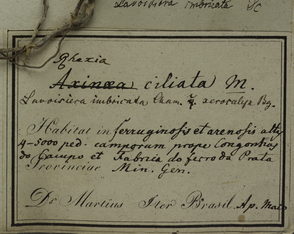 Lavoisiera imbricata
Ghexia
Axinæa ciliata M.
Lavoisiera imbricata Cham. xerocalyx Bg.
Habitat in ferruginosis et arenosis altis
4-5000 ped. camporum prope Congonhas
do Campo et Fabrica do ferro da Prata
Provinciae Min. Gen.
Dr Martius Iter Brasil. Ap. Maio